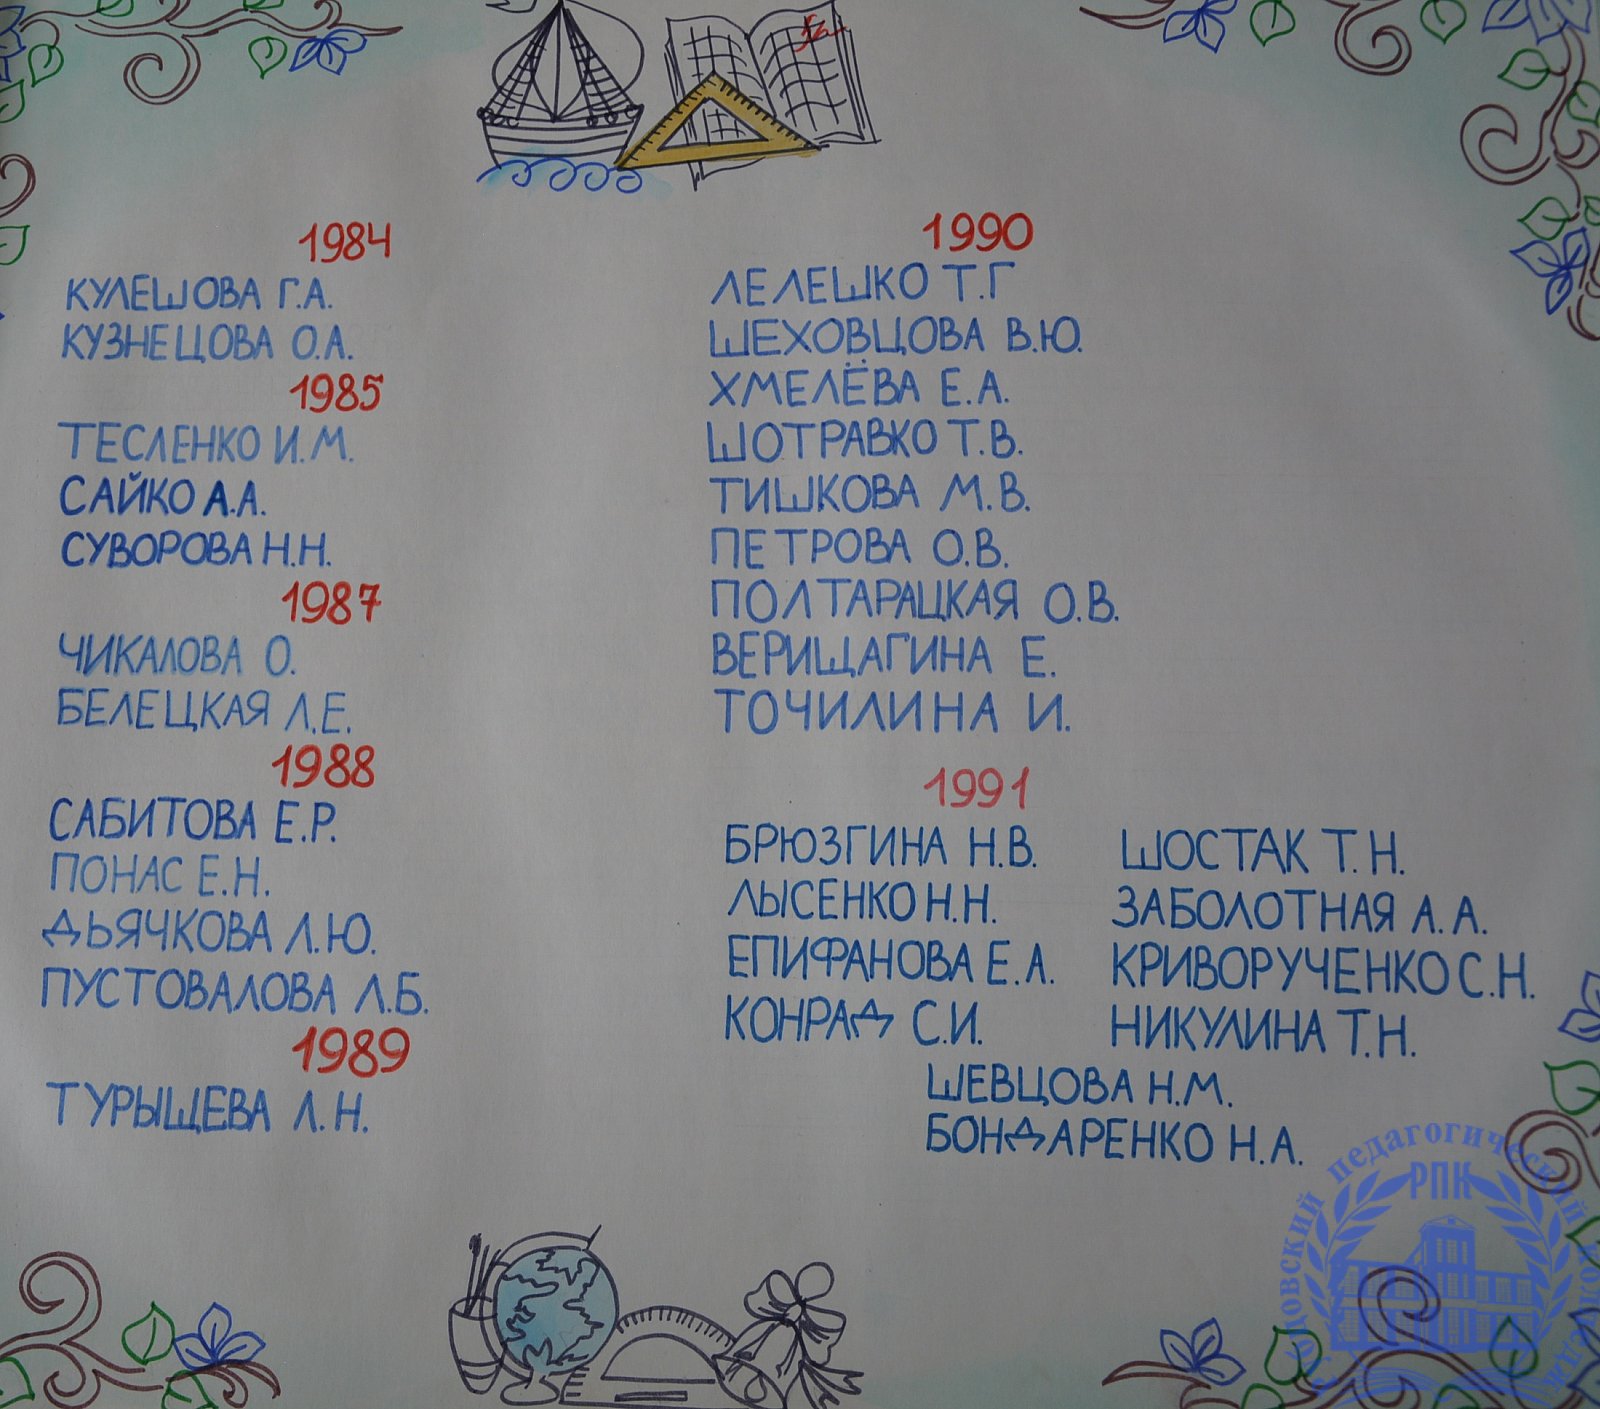 1984
КУЛЕШОВА Г.А.
КУЗНЕЦОВА О.А.
1985
ТЕСЛЕНКО И.М.
САЙКО А.А.
СУВОРОВА Н.Н.
1987
ЧИКАЛОВА О.
БЕЛЕЦКАЯ Л.Е.
1988
САБИТОВА Е.Р.
ПОНАС Е.Н.
ДЬЯЧКОВА Л.Ю.
ПУСТОВАЛОВА Л.Б.
1989
ТУРЫЩЕВА Л.Н.
1990
ЛЕЛЕШКО Т.Г
ШЕХОВЦОВА В.Ю.
ХМЕЛЁВА Е.А.
ШОТРАВКО Т.В.
ТИШКОВА М.В.
ПЕТРОВА О.В.
ПОЛТАРАЦКАЯ О.В.
ВЕРИЩАГИНА Е.
ТОЧИЛИНА И.
1991
БРЮЗГИНА Н.В.
ЛЫСЕНКО Н.Н.
ЕПИФАНОВА Е.А.
КОНРАД С.И.
ШОСТАК Т.Н.
ЗАБОЛОТНАЯ А.А.
КРИВОРУЧЕНКО С.Н.
НИКУЛИНА Т.Н.
ШЕВЦОВА Н.М.
БОНДАРЕНКО Н.А.
педагогический
РПК